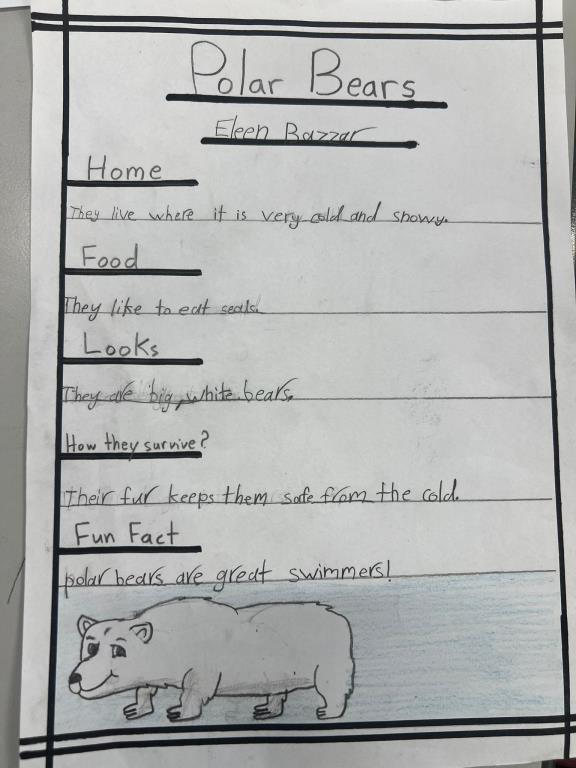 Polar Bears
Eleen Bazzar
Home
They live where it is very cold and snowy.
Food
They like to eat seals.
Looks
They are big, white bears.
How they survive?
Their fur keeps them safe from the cold.
Fun Fact
polar bears are great swimmers!